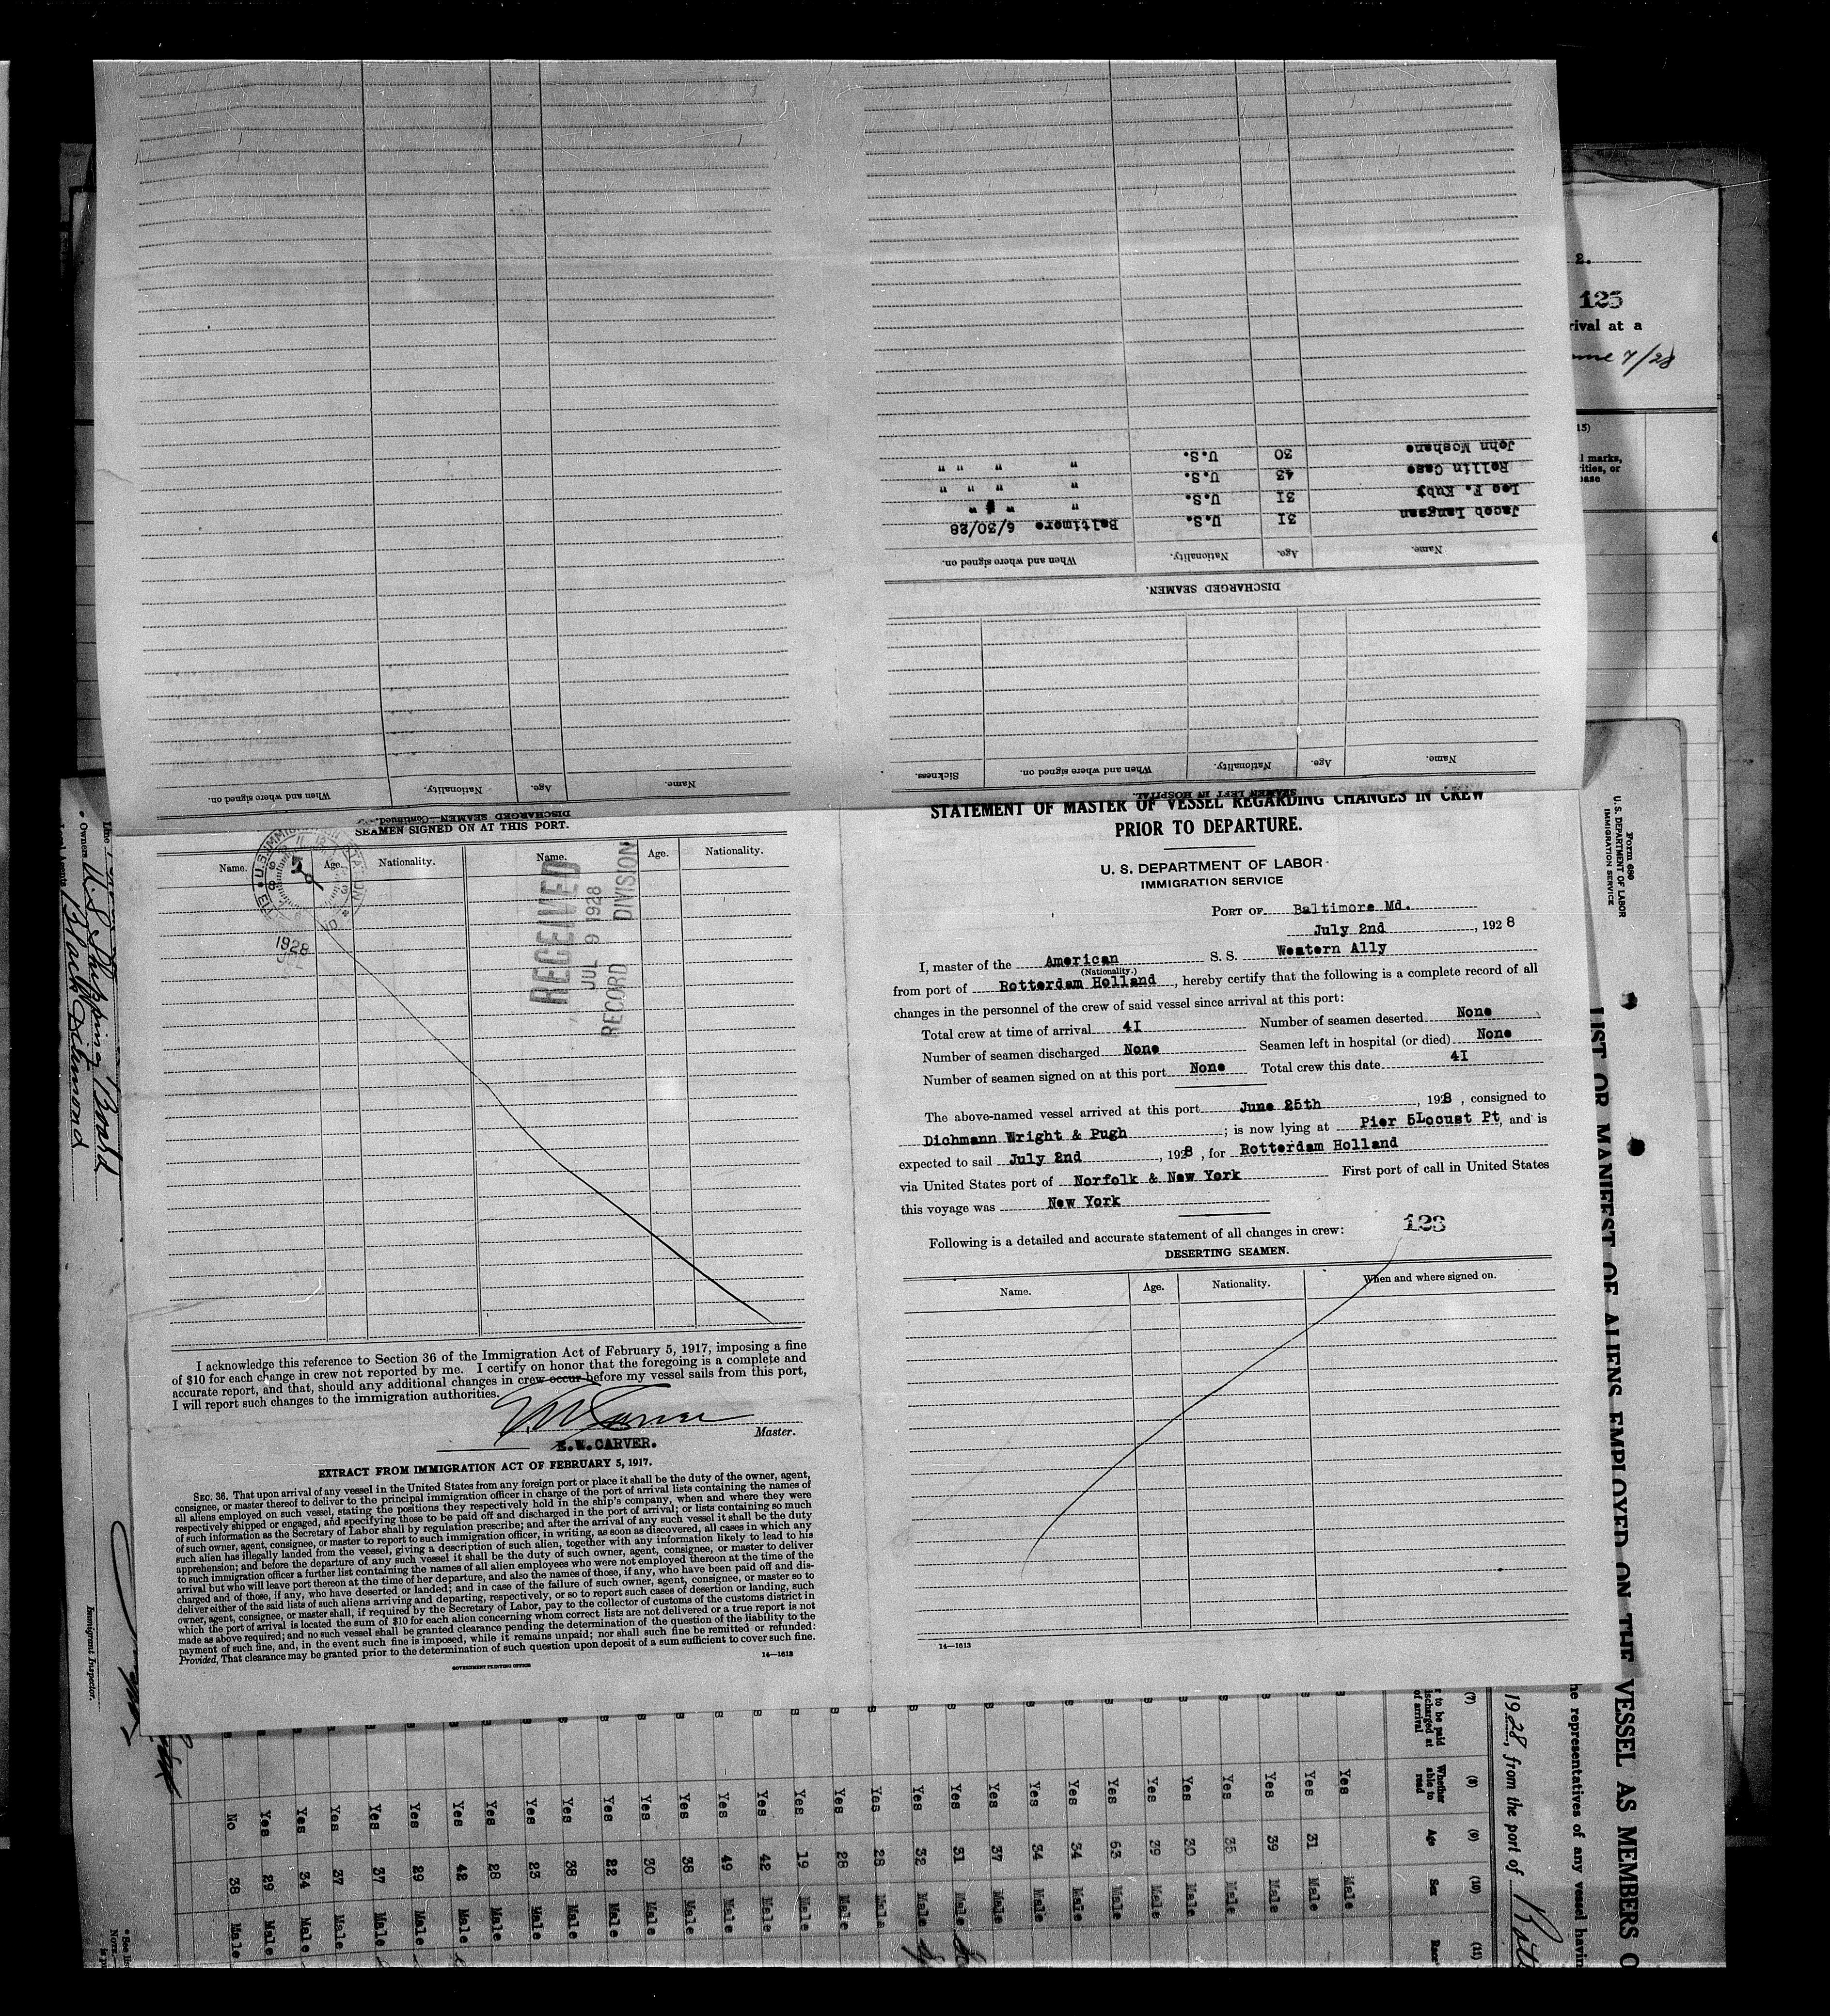 STATEMENT OF MASTER OF VESSEL REGARDING CHANGES IN CREW
PRIOR TO DEPARTURE.
U. S. DEPARTMENT OF LABOR
IMMIGRATION SERVICE
PORT OF Baltimore Md.
July 2nd, 1928
I, master of the American S. S. Western Ally
(Nationality.)
from port of Rotterdam Holland, hereby certify that the following is a complete record of all
changes in the personnel of the crew of said vessel since arrival at this port:
Total crew at time of arrival 4I Number of seamen deserted None
Number of seamen discharged None Seamen left in hospital (or died) None
Number of seamen signed on at this port None Total crew this date 4I
The above-named vessel arrived at this port June 25th, 1928, consigned to
Dichmann Wright & Pugh; is now lying at Pier 5 Locust Pt, and is
expected to sail July 2nd, 1928, for Rotterdam Holland
via United States port of Norfolk & New York First port of call in United States
this voyage was New York
123
Following is a detailed and accurate statement of all changes in crew:
DESERTING SEAMEN.
Name. Age. Nationality. When and where signed on.
14—1613
SEAMEN LEFT IN HOSPITAL.
Name. Age. Nationality. When and where signed on. Sickness.
DISCHARGED SEAMEN.
Name. Age. Nationality. When and where signed on.
Jacob Langsen 3I U.S. Baltimore 6/30/28
Leo F. Ruby 3I U.S. " " "
Rollin Case 43 U.S. " " " "
John Moshane 30 U.S. " " " "
DISCHARGED SEAMEN—Continued.
Name. Age. Nationality. When and where signed on.
SEAMEN SIGNED ON AT THIS PORT.
Name. Age. Nationality. Name. Age. Nationality.
1928
RECEIVED
JUL 9 1928
RECORD DIVISION
I acknowledge this reference to Section 36 of the Immigration Act of February 5, 1917, imposing a fine
of $10 for each change in crew not reported by me. I certify on honor that the foregoing is a complete and
accurate report, and that, should any additional changes in crew occur before my vessel sails from this port,
I will report such changes to the immigration authorities.
Master.
E.W.CARVER.
EXTRACT FROM IMMIGRATION ACT OF FEBRUARY 5, 1917.
SEC. 36. That upon arrival of any vessel in the United States from any foreign port or place it shall be the duty of the owner, agent,
consignee, or master thereof to deliver to the principal immigration officer in charge of the port of arrival lists containing the names of
all aliens employed on such vessel, stating the positions they respectively hold in the ship's company, when and where they were
respectively shipped or engaged, and specifying those to be paid off and discharged in the port of arrival; or lists containing so much
of such information as the Secretary of Labor shall by regulation prescribe; and after the arrival of any such vessel it shall be the duty
of such owner, agent, consignee, or master to report to such immigration officer, in writing, as soon as discovered, all cases in which any
such alien has illegally landed from the vessel, giving a description of such alien, together with any information likely to lead to his
apprehension; and before the departure of any such vessel it shall be the duty of such owner, agent, consignee, or master to deliver
to such immigration officer a further list containing the names of all alien employees who were not employed thereon at the time of the
arrival but who will leave port thereon at the time of her departure, and also the names of those, if any, who have been paid off and dis-
charged and of those, if any, who have deserted or landed; and in case of the failure of such owner, agent, consignee, or master so to
deliver either of the said lists of such aliens arriving and departing, respectively, or so to report such cases of desertion or landing, such
owner, agent, consignee, or master shall, if required by the Secretary of Labor, pay to the collector of customs of the customs district in
which the port of arrival is located the sum of $10 for each alien concerning whom correct lists are not delivered or a true report is not
made as above required; and no such vessel shall be granted clearance pending the determination of the question of the liability to the
payment of such fine, and, in the event such fine is imposed, while it remains unpaid; nor shall such fine be remitted or refunded:
Provided, That clearance may be granted prior to the determination of such question upon deposit of a sum sufficient to cover such fine.
14—1613
GOVERNMENT PRINTING OFFICE
2.
125
rival at a
7/28
15)
l marks,
rities, or
ease
Form 680
U. S. DEPARTMENT OF LABOR
IMMIGRATION SERVICE
LIST OR MANIFEST OF ALIENS EMPLOYED ON THE VESSEL AS MEMBERS O
he representatives of any vessel havin
1928, from the port of Rott
(7) (8) (9) (10) (11)
r to be paid
ischarged at
of arrival
Whether
able to
read
Age Sex Race
Yes Male
Yes 31 Male
Yes 39 Male
Yes 35 Male
Yes 30 Male
Yes 39 Male
Yes 63 Male
Yes 34 Male
Yes 34 Male
Yes 37 Male
Yes 31 Male
Yes 32 Male
Yes 28 Male
Yes 28 Male
Yes 19 Male
Yes 42 Male
Yes 49 Male
Yes 38 Male
Yes 30 Male
Yes 22 Male
Yes 38 Male
Yes 23 Male
Yes 28 Male
Yes 42 Male
Yes 29 Male
Yes 37 Male
Yes 37 Male
Yes 34 Male
Yes 29 Male
No 38 Male
Line
Owners U. S. Shipping Board
Local Agents Black Diamond
Immigrant Inspector.